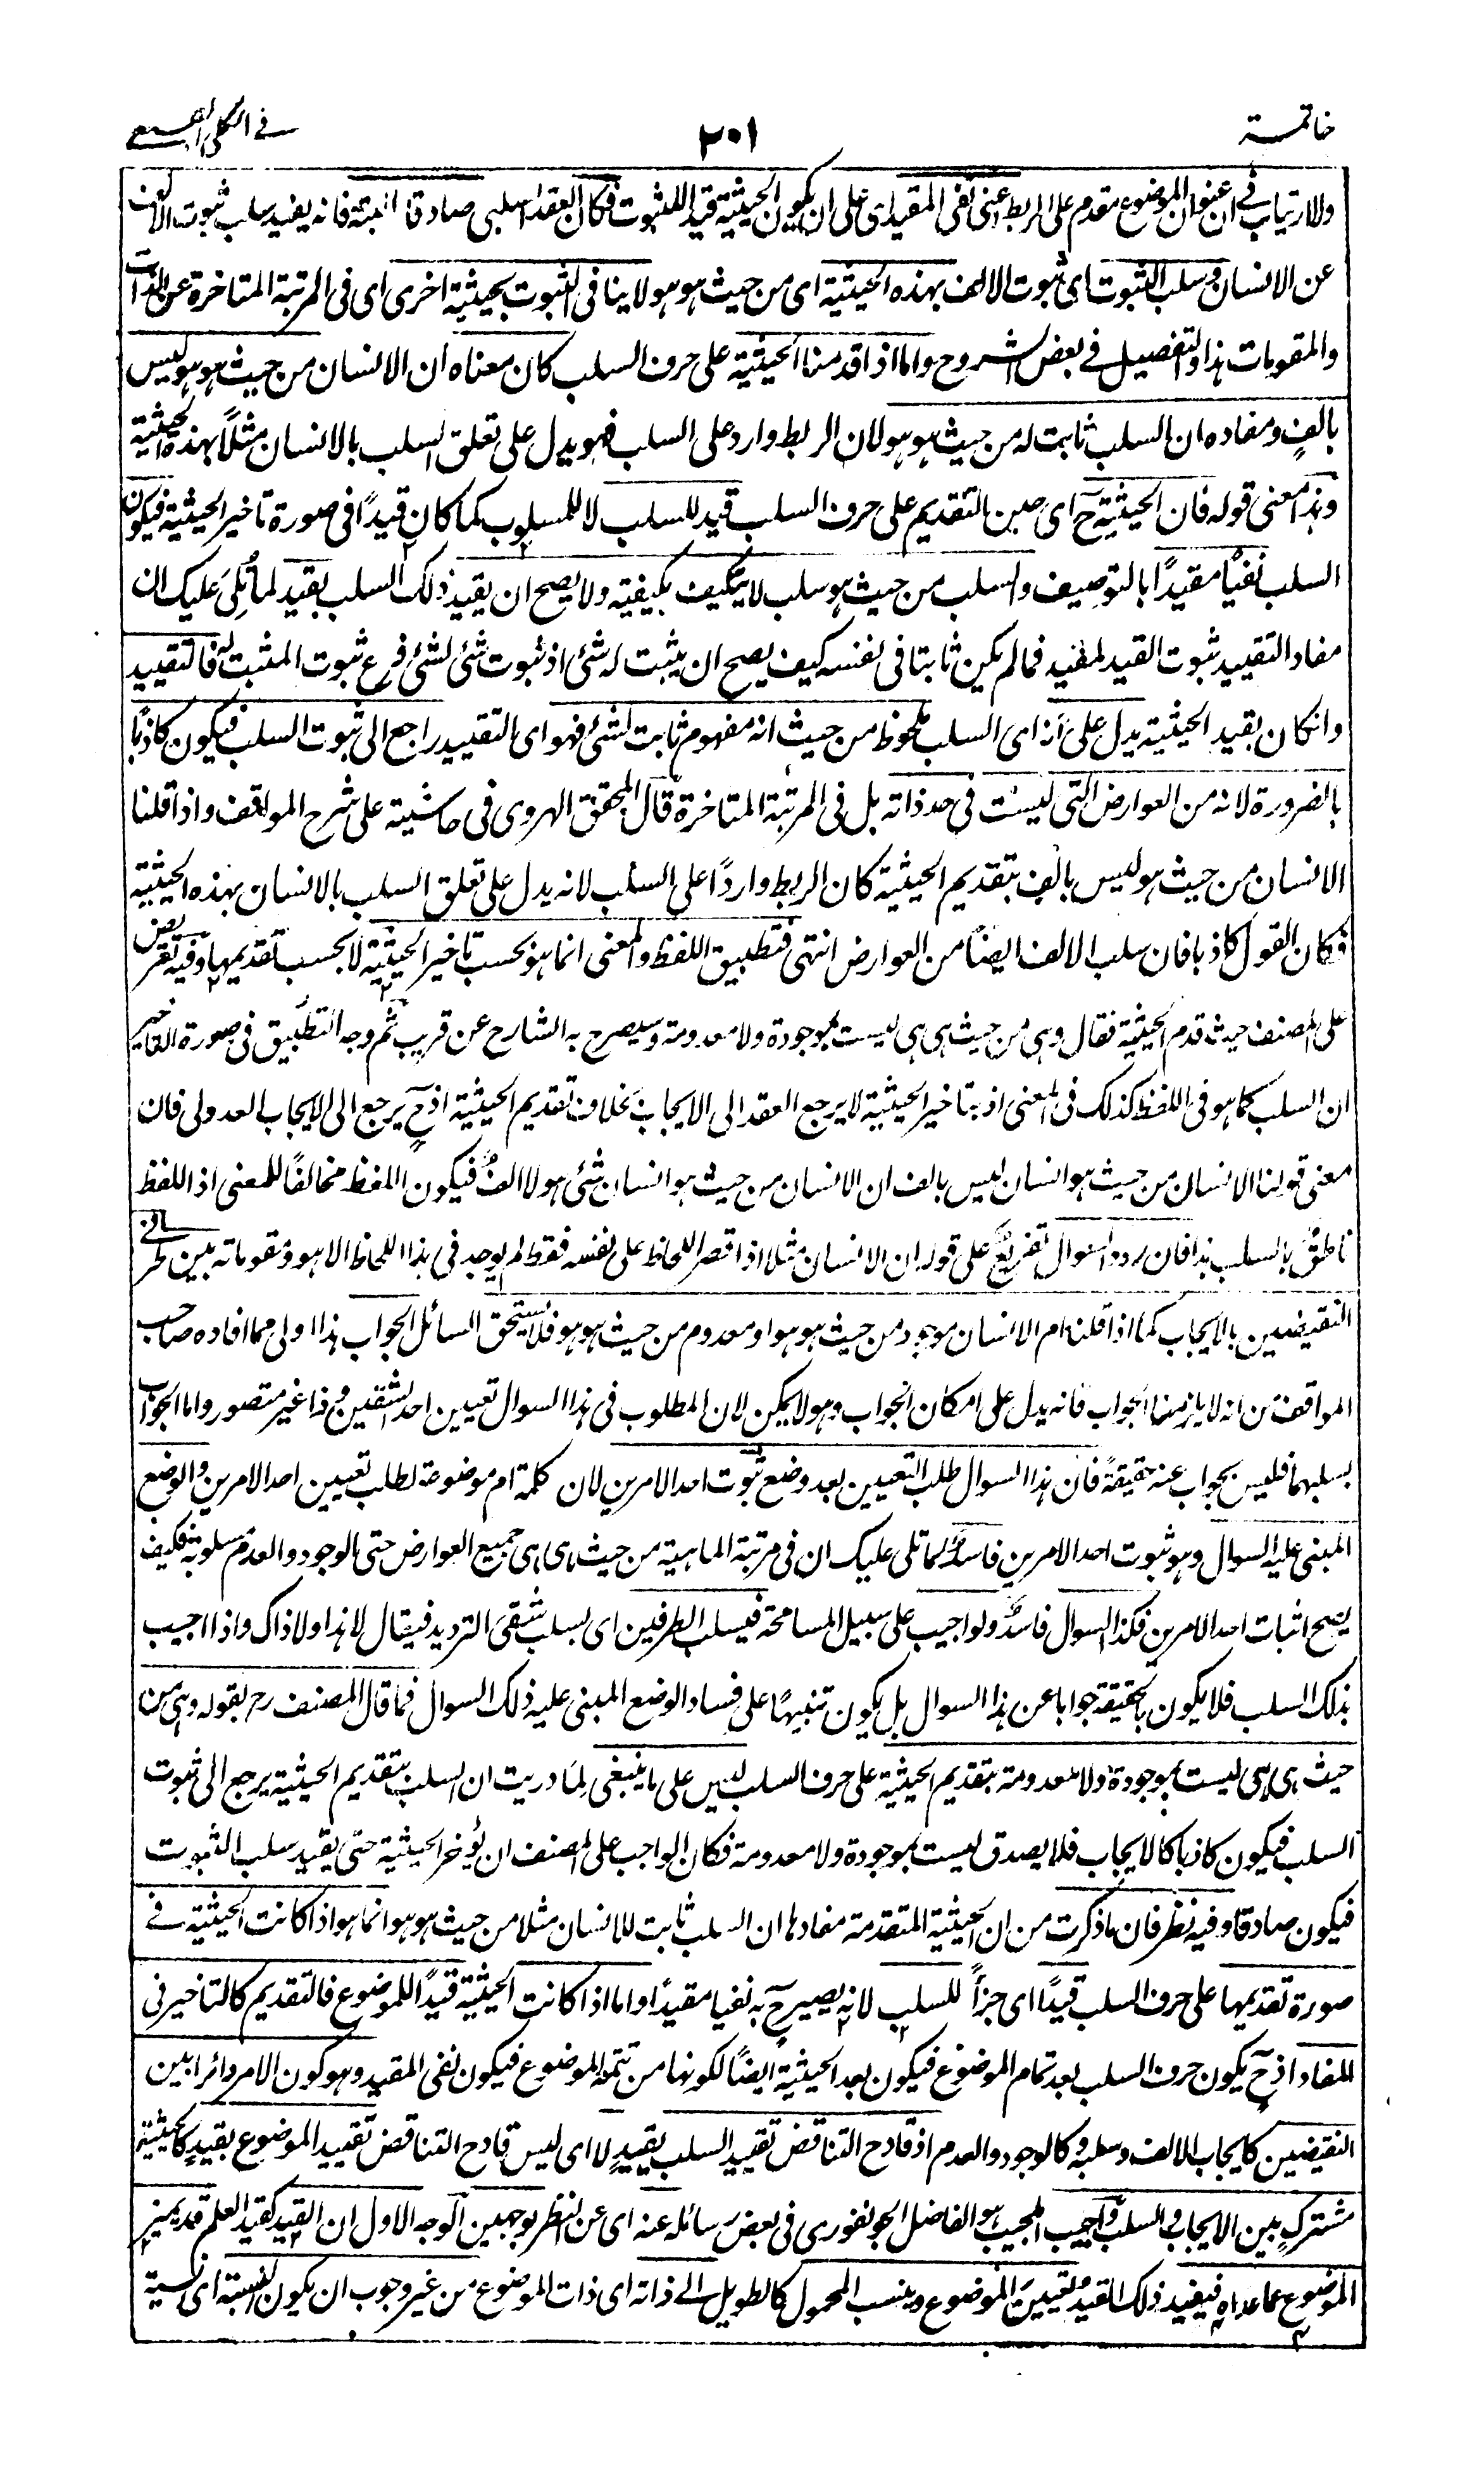 خاتمة
٢٠١
فى الكلى الطبيعى
ولا ارتياب فى ان عنوان الموضوع مقدم على الربط اعنى نفى المقيد اى على ان يكون الحيثية قيدا للثبوت فكان العقد السلبى صادقا البتة فانه يفيد سلب ثبوت الالف
عن الانسان وسلب الثبوت اى ثبوت الالف بهذه الحيثية اى من حيث هو هو لا ينافى الثبوت بحيثية اخرى اى فى المرتبة المتاخرة عن الذات
والمقومات هذا والتفصيل فى بعض الشروح واما اذا قدمنا الحيثية على حرف السلب كان معناه ان الانسان من حيث هو هو ليس
بالف ومفاده ان السلب ثابت له من حيث هو هو لان الربط وارد على السلب فهو يدل على تعلق السلب بالانسان مثلاً بهذه الحيثية
وهذا معنى قوله فان الحيثية ح اى حين التقديم على حرف السلب قيد للسلب لا للمسلوب كما كان قيدًا فى صورة تاخير الحيثية فيكون
السلب نفيًا مقيدًا بالتوصيف والسلب من حيث هو سلب لا يتكيف بكيفية ولا يصح ان يقيد ذلك السلب بقيد لما تُلِىَ عليك ان
مفاد التقييد ثبوت القيد لمقيد فما لم يكن ثابتا فى نفسه كيف يصح ان يثبت له شئ اذ ثبوت شئ لشئ فرع ثبوت المثبت له فالتقييد
وانكان بقيد الحيثية يدل على أنه اى السلب ملحوظ من حيث انه مفهوم ثابت لشئ فهو اى التقييد راجع الى ثبوت السلب فيكون كاذبًا
بالضرورة لانه من العوارض التى ليست فى حد ذاته بل فى المرتبة المتاخرة قال المحقق الهروى فى حاشيته على شرح المواقف واذا قلنا
الانسان من حيث هو ليس بالف بتقديم الحيثية كان الربط واردًا على السلب لانه يدل على تعلق السلب بالانسان بهذه الحيثية
فكان القول كاذبا فان سلب الالف ايضًا من العوارض انتهى فتطبيق اللفظ والمعنى انما هو بحسب تاخير الحيثية لا بحسب تقديمها وفيه تعريض
على المصنف حيث قدم الحيثية فقال وهى من حيث هى هى ليست بموجودة ولا معدومة وسيصرح به الشارح عن قريب ثم وجه التطبيق فى صورة التاخير
ان السلب كما هو فى اللفظ كذلك فى المعنى اذ بتاخير الحيثية لا يرجع العقد الى الايجاب بخلاف تقديم الحيثية اذ ح يرجع الى الايجاب العدولى فان
معنى قولنا الانسان من حيث هو انسان ليس بالف ان الانسان من حيث هو انسان شئ هو لا الف فيكون اللفظ مخالفًا للمعنى اذ اللفظ
ناطق بالسلب هذا فان ردد السوال تفريع على قوله ان الانسان مثلا اذا قصر اللحاظ على نفسه فقط لم يوجد فى هذا اللحاظ الا هو ومقوماته بين طرفى
النقيضين بالايجاب كما اذا قلنا ام الانسان موجود من حيث هو هو او معدوم من حيث هو هو فلا يستحق السائل الجواب هذا اولى مما افاده صاحب
المواقف من انه لا يلزمنا الجواب فانه يدل على امكان الجواب وهو لا يمكن لان المطلوب فى هذا السوال تعيين احد الشقين وذا غير متصور واما الجواب
بسلبهما فليس بجواب عنه حقيقةً فان هذا السوال طلب التعيين بعد وضع ثبوت احد الامرين لان كلمة ام موضوعة لطلب تعيين احد الامرين والوضع
المبنى عليه السوال وهو ثبوت احد الامرين فاسد لما تلى عليك ان فى مرتبة الماهية من حيث هى هى جميع العوارض حتى الوجود والعدم مسلوبة فكيف
يصح اثبات احد الامرين فكذا السوال فاسد ولو اجيب على سبيل المسامحة فيسلب الطرفين اى بسلب شقى الترديد فيقال لا هذا ولا ذاك واذا اجيب
بذلك السلب فلا يكون بالحقيقة جوابا عن هذا السوال بل يكون تنبيهًا على فساد الوضع المبنى عليه ذلك السوال فما قال المصنف رح بقوله وهى من
حيث هى هى ليست بموجودة ولا معدومة بتقديم الحيثية على حرف السلب ليس على ما ينبغى لِمَا دريت ان السلب بتقديم الحيثية يرجع الى ثبوت
السلب فيكون كاذبا كالايجاب فلا يصدق ليست بموجودة ولا معدومة فكان الواجب على المصنف ان يُؤخر الحيثية حتى يفيد سلب الثبوت
فيكون صادقا وفيه نظر فان ما ذكرت من ان الحيثية المتقدمة مفادها ان السلب ثابت للانسان مثلا من حيث هو هو انما هو اذا كانت الحيثية فى
صورة تقديمها على حرف السلب قيدًا اى جزأً للسلب لانه يصير ح به نفيا مقيدًا واما اذا كانت الحيثية قيدًا للموضوع فالتقديم كالتاخير فى
المفاد اذ ح يكون حرف السلب بعد تمام الموضوع فيكون بعد الحيثية ايضًا لكونها من تتمة الموضوع فيكون نفى المقيد وهو كون الامر دائرا بين
النقيضين كايجاب الالف وسلبه وكالوجود والعدم اذ قادح التناقض تقييد السلب بقيدٍ لا اى ليس قادح التناقض تقييد الموضوع بقيدٍ كالحيثية
مشتركٍ بين الايجاب والسلب واجيب المجيب هو الفاضل الجونفورى فى بعض رسائله عنه اى عن النظر بوجهين الوجه الاول ان القيد كقيد العلم قد يميز
الموضوع عما عداه فيفيد ذلك القيد تعيين الموضوع وينسب المحمول كالطويل الى ذاته اى ذات الموضوع من غير وجوب ان يكون لنسبة اى نسبة